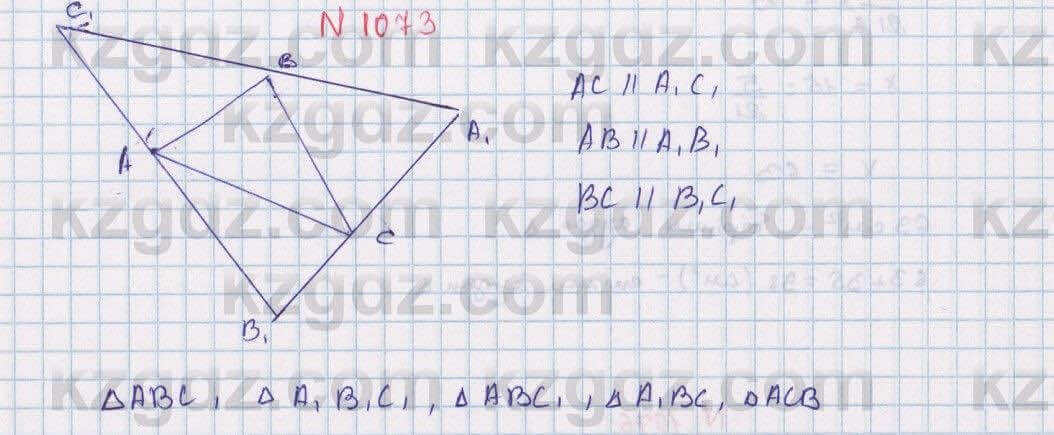 N 1073
C₁
B
A₁
A
C
B₁
AC || A₁C₁
AB || A₁B₁
BC || B₁C₁
△ABC, △A₁B₁C₁, △ABC₁, △A₁BC, △ACB
kzgdz.com